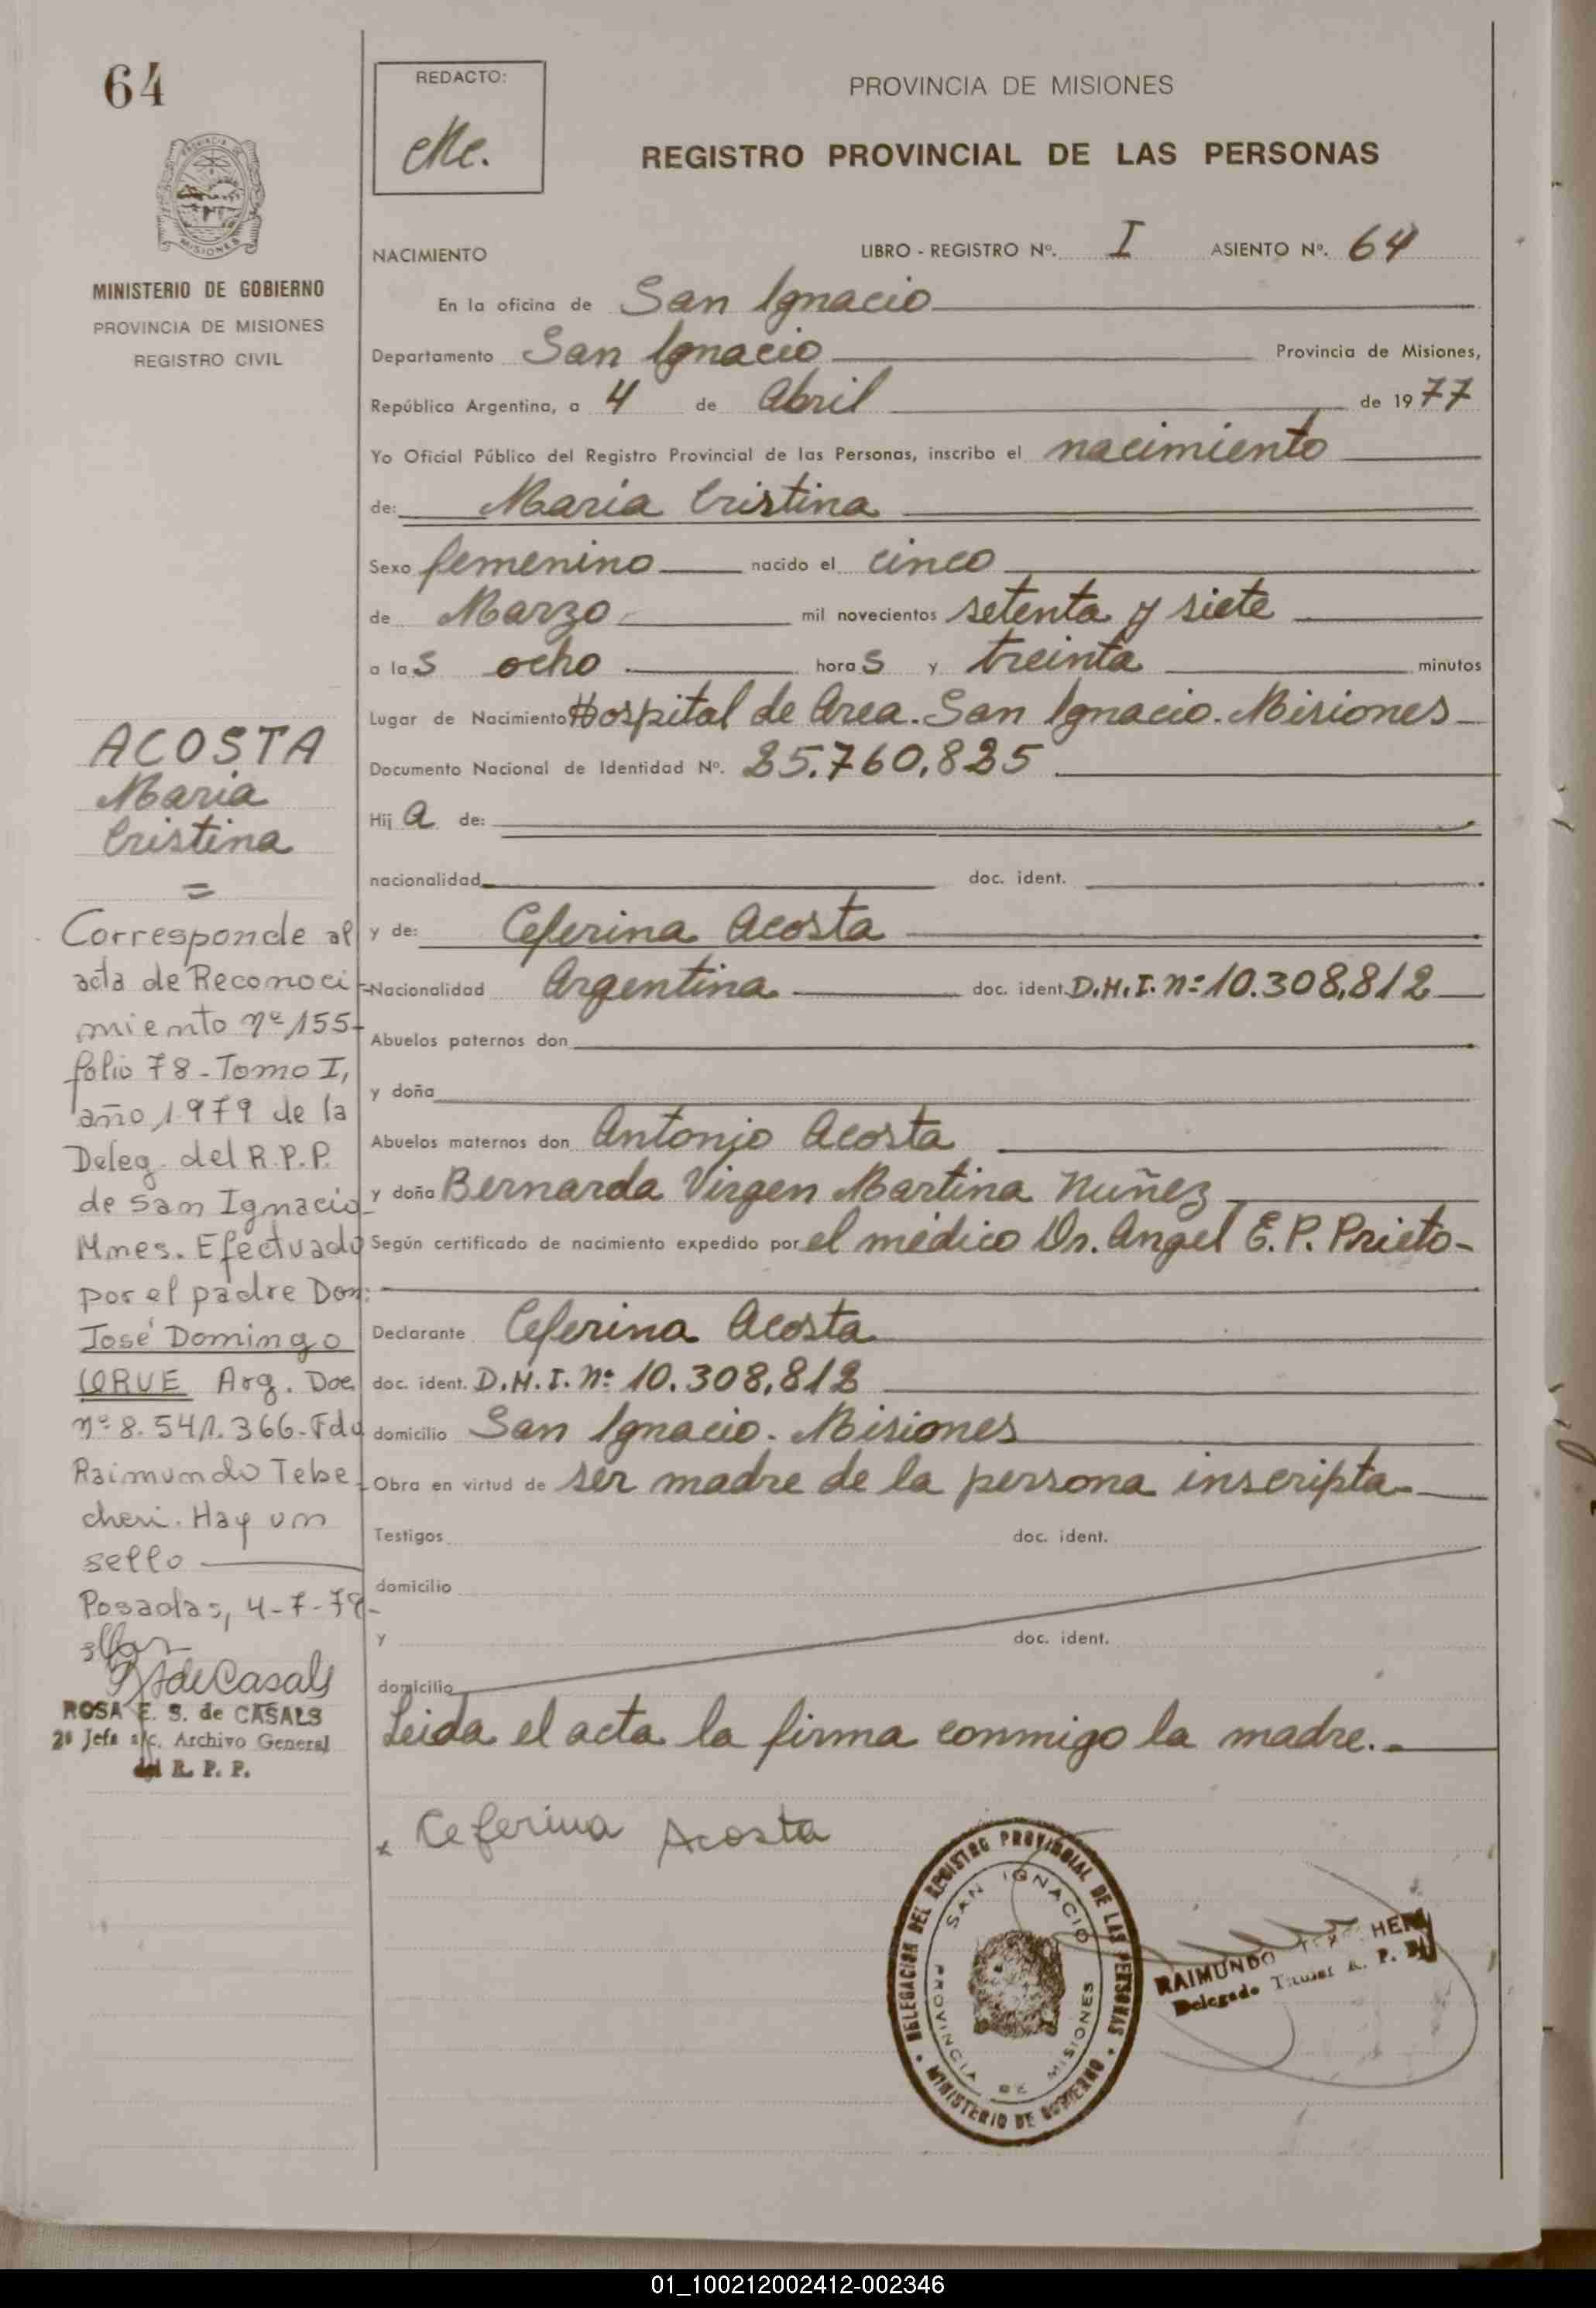 64
MINISTERIO DE GOBIERNO
PROVINCIA DE MISIONES
REGISTRO CIVIL
REDACTO:
PROVINCIA DE MISIONES
REGISTRO PROVINCIAL DE LAS PERSONAS
NACIMIENTO LIBRO - REGISTRO Nº. I ASIENTO Nº. 64
En la oficina de San Ignacio
Departamento San Ignacio Provincia de Misiones,
República Argentina, a 4 de Abril de 1977
Yo Oficial Público del Registro Provincial de las Personas, inscribo el nacimiento
de: Maria Cristina
Sexo femenino nacido el cinco
de Marzo mil novecientos setenta y siete
a las ocho horas y treinta minutos
Lugar de Nacimiento Hospital de Area. San Ignacio. Misiones
Documento Nacional de Identidad Nº. 25.760,825
Hija de:
nacionalidad doc. ident.
y de: Ceferina Acosta
Nacionalidad Argentina doc. ident. D.N.I. nº 10.308,812
Abuelos paternos don
y doña
Abuelos maternos don Antonio Acosta
y doña Bernarda Virgen Martina Nuñez
Según certificado de nacimiento expedido por el médico Dr. Angel E.P. Prieto-
Declarante Ceferina Acosta
doc. ident. D.N.I. nº 10.308,812
domicilio San Ignacio. Misiones
Obra en virtud de ser madre de la persona inscripta.
Testigos doc. ident.
domicilio
y doc. ident.
domicilio
Leida el acta la firma conmigo la madre.
Ceferina Acosta
ACOSTA
Maria
Cristina
=
Corresponde al
acta de Reconoci-
miento nº 155-
folio 78-Tomo I,
año 1979 de la
Deleg. del R.P.P.
de San Ignacio
Mnes. Efectuado
por el padre Don:
José Domingo
Arg. Doc
nº 8.541.366-Fdo
Raimundo Tebe-
cheri. Hay un
sello
Posadas, 4-7-79-
de Casals
ROSA E. S. de CASALS
2º Jefe a/c. Archivo General
del R. P. P.
DELEGACION DEL REGISTRO PROVINCIAL DE LAS PERSONAS
MINISTERIO DE GOBIERNO
SAN IGNACIO
PROVINCIA DE MISIONES
RAIMUNDO
Delegado Titular R. P. P.
01_100212002412-002346